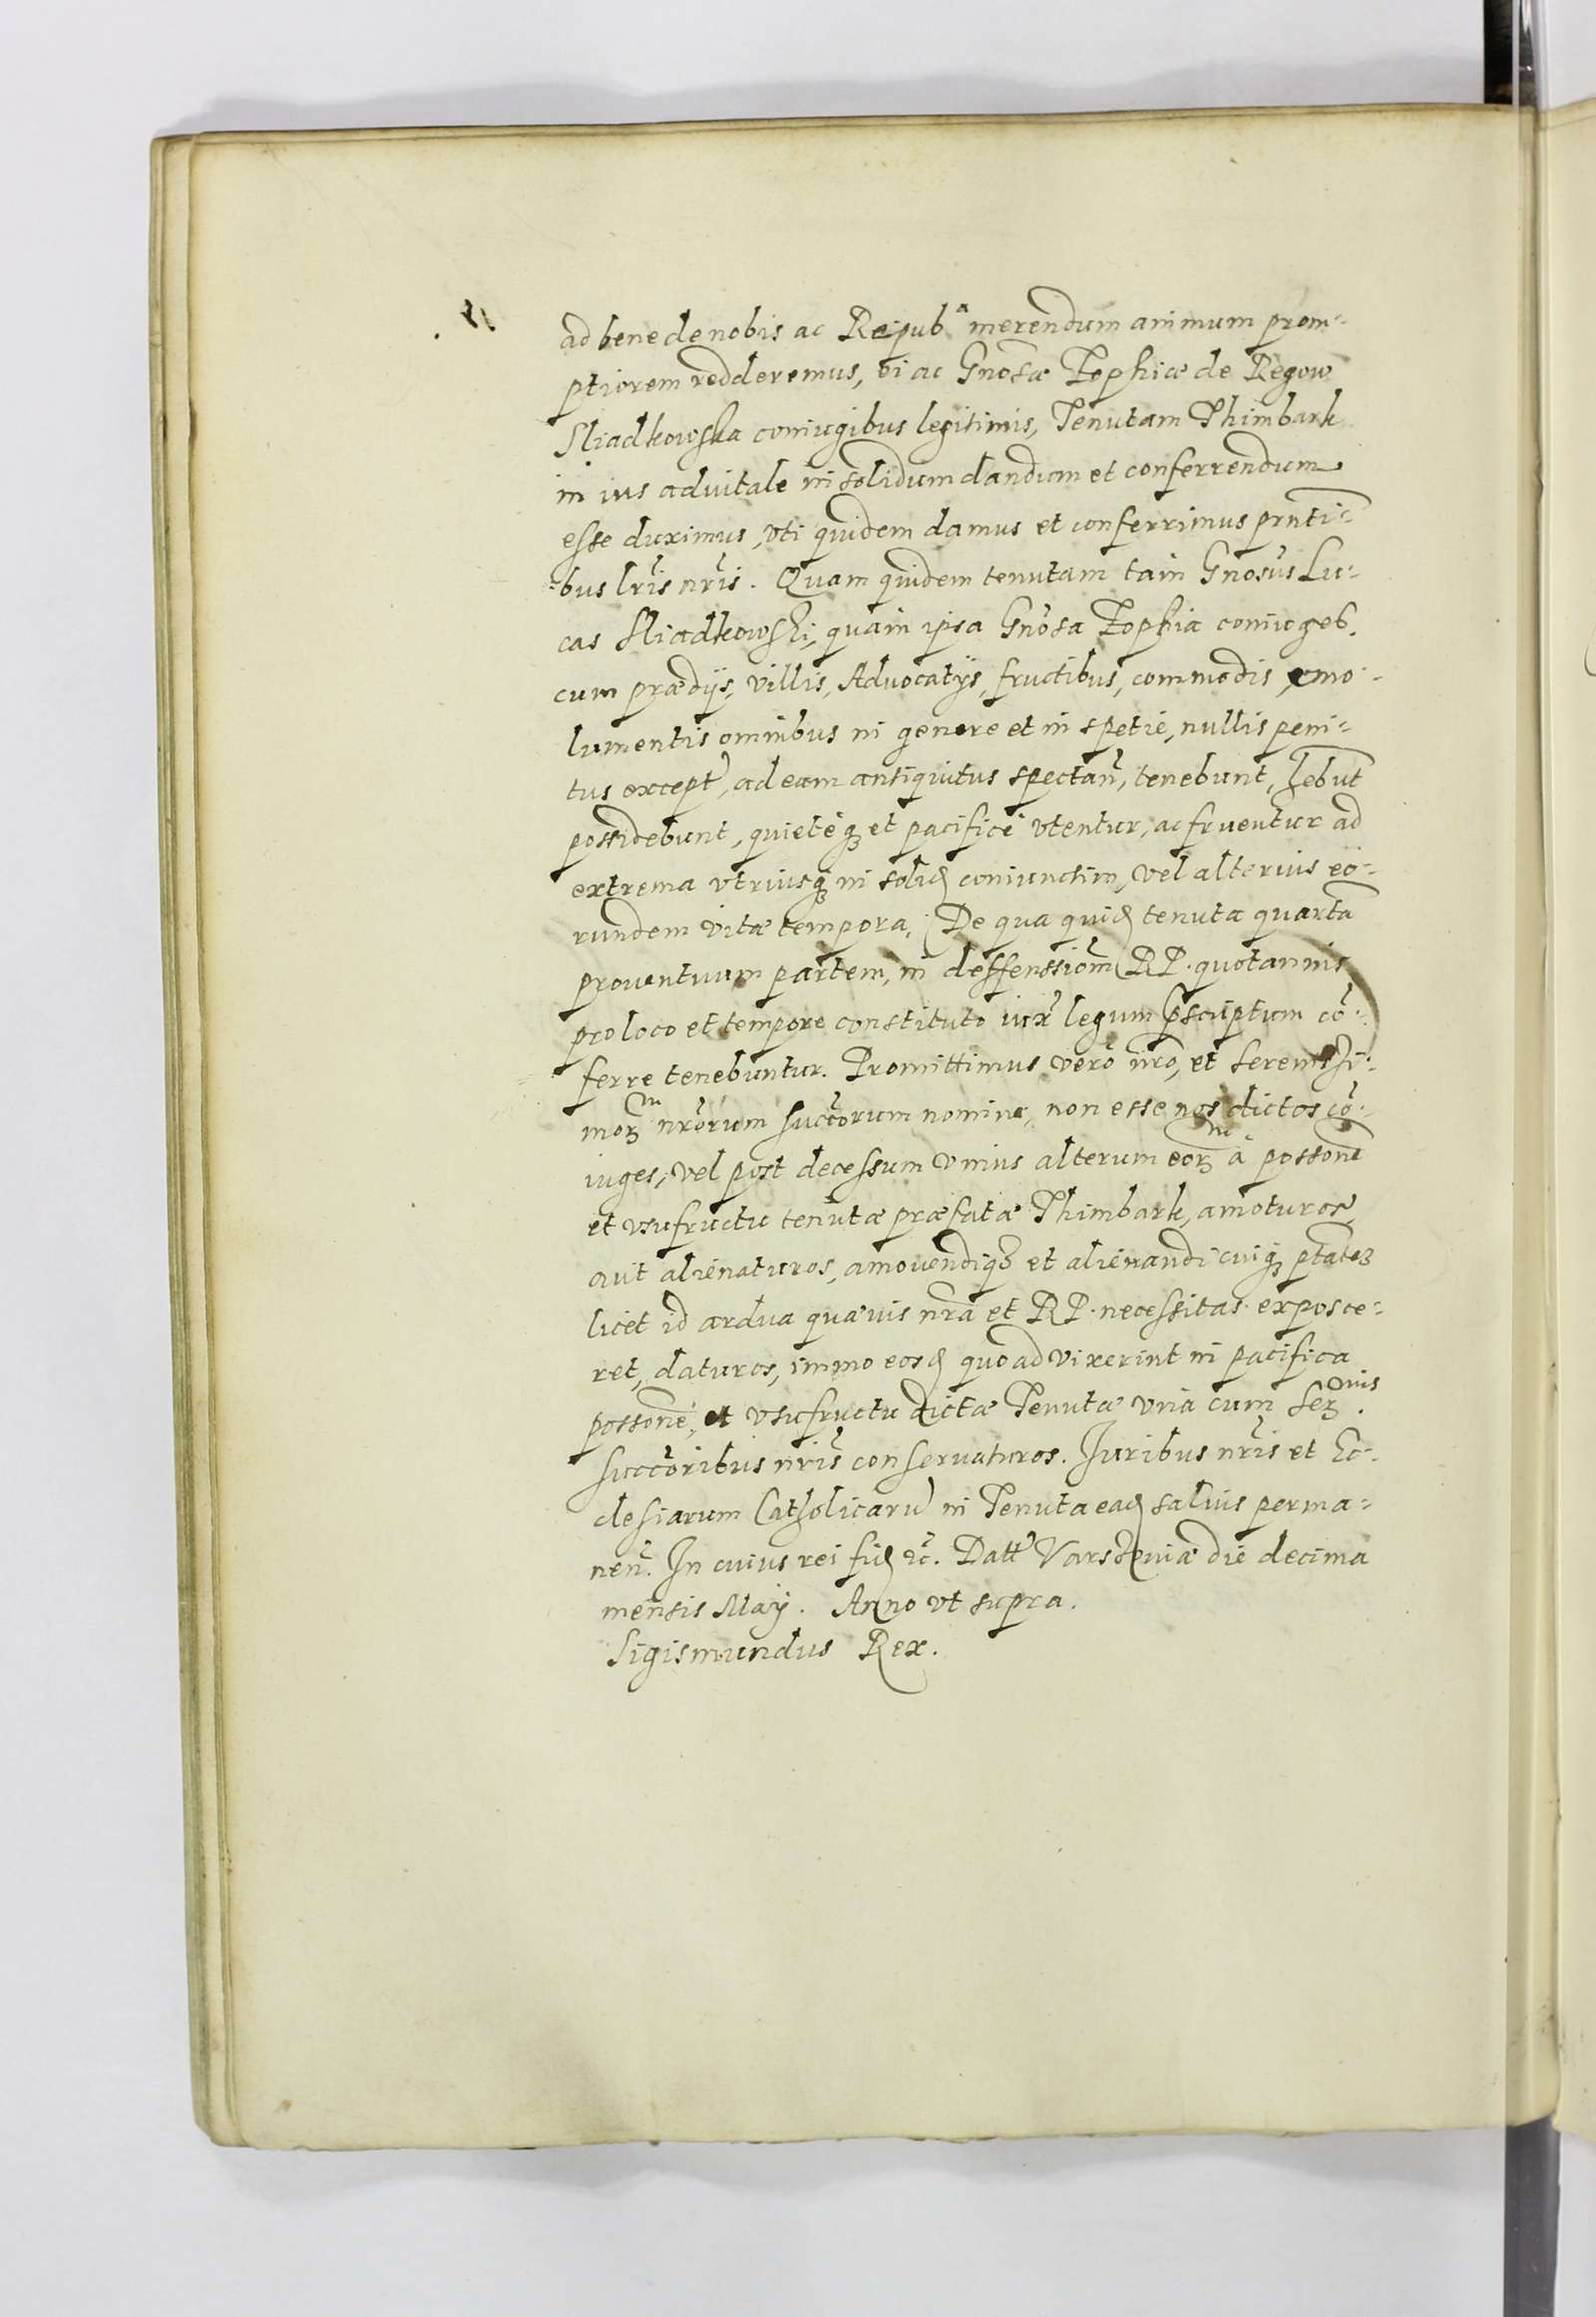 ad bene de nobis ac Reipub.ᵃ merendum animum prom-
ptiorem redderemus, ei ac Gnosæ Zophiæ de Regow
Sliadkowska coniugibus legitimis, Tenutam Thimbark
in ius advitale in solidum dandum et conferrendum
esse duximus, vti quidem damus et conferrimus prnti-
bus lris nris. Quam quidem tenutam tam Gnosus Lu-
cas Sliadkowski, quam ipsa Gnosa Zophia coniugeb.
cum prædijs, villis, Advocatijs, fructibus, commodis, emo-
lumentis omnibus in genere et in spetie, nullis peni-
tus except, ad eam antiquitus spectan, tenebunt, hebut
possidebunt, quieteq et pacifice vtentur, ac fruentur ad
extrema vtriusq in solid coniunctim, vel alterius eo-
rundem vitæ tempora. De qua quid tenuta quarta
proventuum partem, in deffenssiom RP. quotannis
pro loco et tempore constituto iux legum pscriptum co-
ferre tenebuntur. Promittimus vero nro, et Serenissi-
morᵐ nrorum succorum nomine, non esse nos dictos co-
iuges, vel post decessum vnius alterum eorᵐ a possone
et vsufructu tenutæ præfatæ Thimbark, amoturos,
aut alienaturos, amovendiq et alienandi cuiq ptatem
licet id ardua quævis nra et RP. necessitas exposce-
ret, daturos, immo eosd quoad vixerint in pacifica
possone, et vsufructu dictæ Tenutæ vna cum Serᵐⁱˢ.
succoribus nris conservaturos. Juribus nris et Ec-
clesiarum Catholicaru in Tenuta ead salvis perma-
nen. In cuius rei fid etc. Datt Varssouiæ die decima
mensis Maij. Anno vt supra.
Sigismundus Rex.